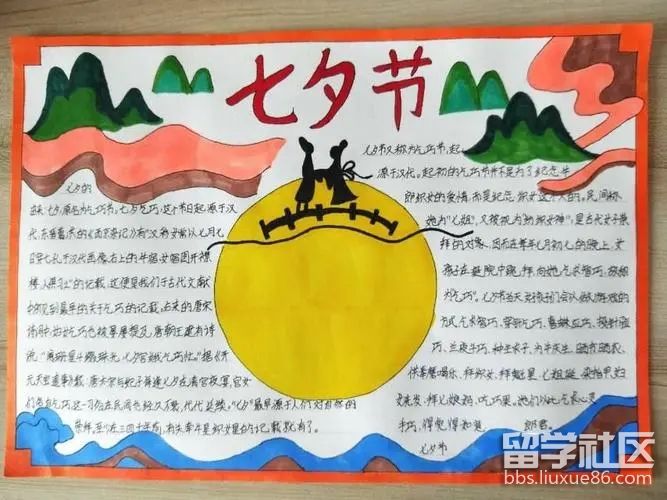 七夕节
七夕的
由来 七夕,原名为乞巧节,七夕乞巧,这个节日起源于汉
代,东晋葛洪的《西京杂记》有"汉彩女常以七月七
日穿七孔针于开襟楼
的记载,这便是我们于古代文献
中所见到最早的关于乞巧的记载。后来的唐宋
诗词中,妇女乞巧也被屡屡提及,唐朝王建有诗
说"阑珊星斗缀珠光,七夕宫娥乞巧忙。"据《开
元天宝遗事》载:唐太宗与妃子每逢七夕在清宫夜宴,宫女
们各自乞巧,这一习俗在民间也经久不衰,代代延续。"七夕"最早源于人们对自然的
崇拜,至少在三四千年前,有关牵牛星织女星的记载就有了。
七夕节又称为乞巧节,起
源于汉代。起初的乞巧节并不是为了纪念牛
郎织女的爱情,而是纪念织女这个人的。民间称
她为"七姐",又被视为纺织女神",是古代女子崇
拜的对象,因而在每年七月初七的晚上,女
孩子在庭院中跪拜,向她乞求智巧,故称
为"乞巧"。七夕当天
方式乞求智巧,穿针乞巧、喜蛛应巧、投针验
巧、兰夜斗巧、种生求子、为牛庆生、晒书晒衣、
供奉磨喝乐、拜织女、拜魁星、七姐诞、染指甲、妇
女洗发、拜七娘妈、吃巧果
七夕节
留学社区
bbs.liuxue86.com